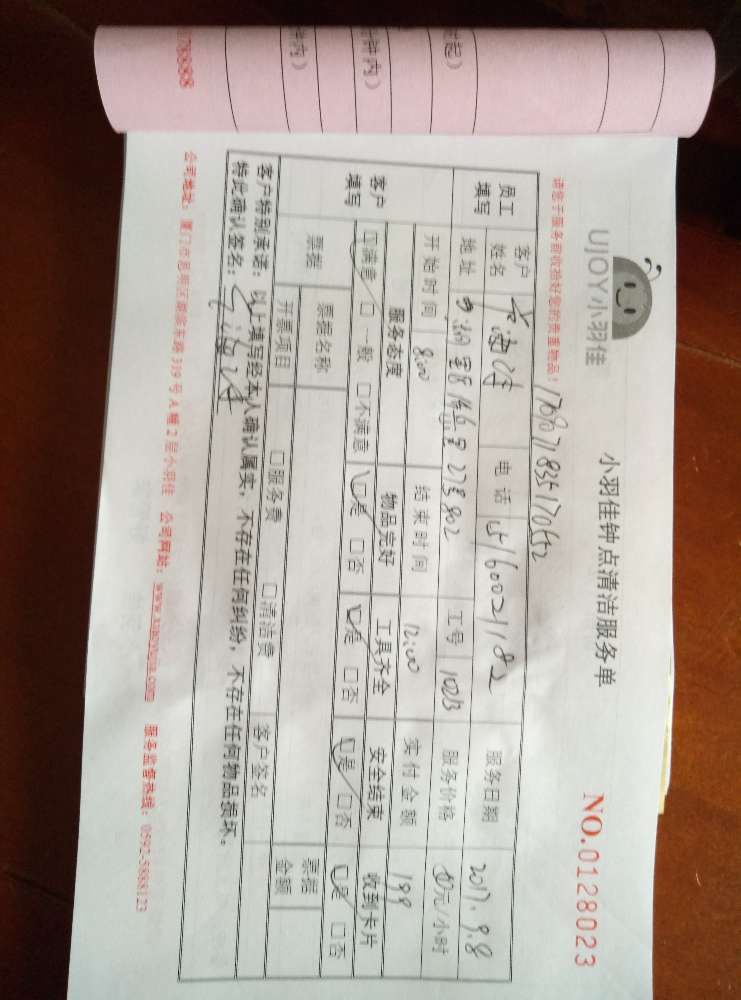 UJOY小羽佳
小羽佳钟点清洁服务单
NO.0128023
请您于服务前收拾好您的贵重物品!
员工填写
客户姓名
电话
15160021182
服务日期
2017.9.8
地址
27号802
工号
1023
服务价格
元/小时
开始时间
8:00
结束时间
12:00
实付金额
199
客户填写
服务态度
物品完好
工具齐全
安全结束
收到卡片
☑满意 □一般 □不满意
☑是 □否
☑是 □否
☑是 □否
☑是 □否
票据
票据名称
票据金额
开票项目
□服务费 □清洁费
客户签名
客户特别承诺:以上填写经本人确认属实,不存在任何纠纷,不存在任何物品损坏。
特此确认签名:
公司地址:厦门市思明区 东路319号A幢2层小羽佳 公司网站:www.xiaoyujia.com 服务监督热线:0592-5888123